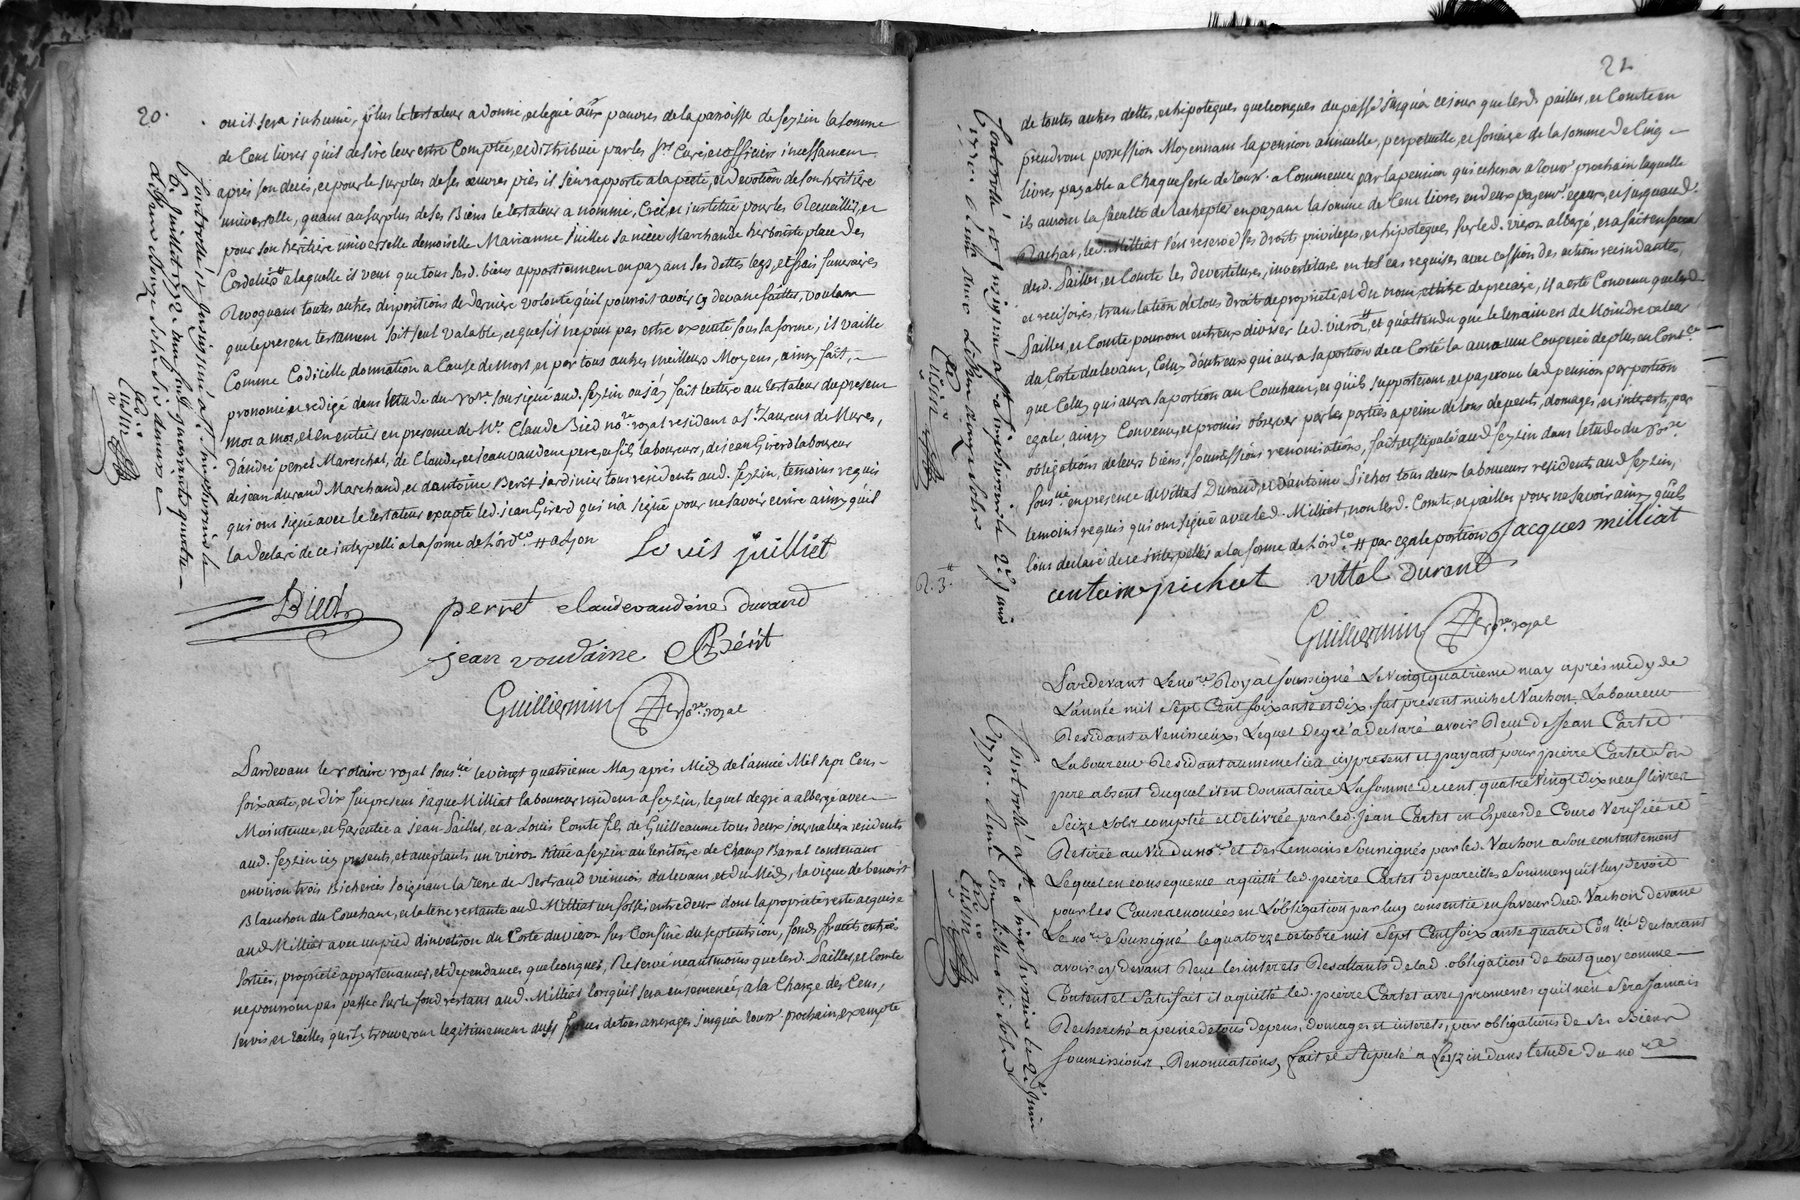 20.
ou it sera inhumé, plus le testateur a donné, et legué aux pauvres de la parroisse de feyzin la somme
de Cent livres qu'il desire leur estre Comptée, et distribuée par les srs Curé, et officiers incessament
apres son decés, et pour le surplus de ses œuvres pies il s'en rapporte a la pieté, et devotion de son heritiere
universelle, quant au surplus de ses Biens le testateur a nommé, Créé, et institué pour les Recueillir, et
pour son heritiere universelle demoiselle Marianne juillet sa niece Marchande herboriste place des
Cordeliers # a laquelle il veut que tous sesd. biens appartiennent en payant ses dettes legs, et frais funeraires
Revoquant toutes autres dispositions de derniere volonté qu'il pouroit avoir cy devant faittes, voulant
que le present testament soit seul valable, et que s'il ne peut pas estre executé sous sa forme, il vaille
Comme Codicille donnation a Cause de mort, et par tous autres meilleurs Moyens, ainsy fait,
prononcé et redigé dans l'étude du nore. sousigné aud. feyzin ou j'ay fait lecture au testateur du present
mot a mot, et en entier en presence de Me. Claude Bied nore. royal resident a st. Laurent de Mures,
d'andré perret Mareschal, de Claude, et jean vaudene pere, et fils laboureurs, de jean Girerd laboureur
de jean durand Marchand, et d'antoine Berit jardinier tous residents aud. feyzin, temoins requis
qui ont signé avec le testateur excepté led. jean Girerd qui n'a signé pour ne savoir ecrire ainsy qu'il
la declaré de ce interpellé a la forme de l'ordce. # a Lyon
Louis juilliet
Bied
perret claude vaudéne durand
jean voudaine Bérit
Guilliermin nore. royal
Pardevant le notaire royal sousné. le vingt quatrieme May après Midy de l'année Mil sept Cens
soixante, et dix fut present jaque Milliat laboureur resident a feyzin, lequel degré a albergé avec
Maintenue, et Garentie a jean Pailles, et a Louis Comte fils de Guilleaume tous deux journaliers residents
aud. feyzin icy presents, et acceptants un vieron situé a feyzin au teritoire de Champ Barral contenant
environ trois Bicherées joignant la terre de Bertrand viennois du levant, et du Midy, la vigne de benoist
Blanchon du Couchant, et la terre restante aud. Milliat un fossé entre deux dont la proprieté reste acquise
aud. Milliat avec un pied d'invetison du Costé du vieron sur Confiné du septentrion, fonds fruits entrées
sorties, proprieté appartenances, et dependances quelconques, Reservé neantmoins que lesd. Pailles, et Comte
ne pourront pas passer sur le fond restant aud. Milliat lorsqu'il sera ensemencé, a la Charge des Cens,
servis, et tailles qui s'y trouveront legitimement dus francs de tous arrerages jusqu'a toussts. prochain, exempte
21
de toutes autres dettes, et hipoteques quelconques du passé jusqu'a ce jour que lesd. pailles, et Comte en
prendront possession Moyennant la pension annuelle, perpetuelle, et fonciere de la somme de Cinq
livres payable a Chaque feste de touss. a Commencer par la pension qui echera a touss. prochain laquelle
ils auront la faculté de rachepter en payant la somme de Cent livres en deux payemts. egaux, et jusqu'aud.
Rachat, led. Milliat s'en reserve ses droits privileges, et hipoteques sur led. vieron albergé, en a fait en faveur
desd. Pailles, et Comte les devestitures, investitures en tel cas requises avec cession des actions rescindantes,
et rescisoires, translation de tous droits de proprieté, et du nom, et titre de precaire, il a esté Convenu que lesd.
Pailles, et Comte pourront entreux diviser led. vieron #, et qu'attendu que le terrain est de Moindre valeur
du Costé du levant, Celuy d'entreux qui aura sa portion de ce Costé la aura une Couperée de plus en Contce.
que Celuy qui aura sa portion au Couchant, et qu'ils supporteront, et payeront lad. pension par portion
egale, ainsy Convenu, et promis observer par les parties a peine de tous depents, domages, et interests, par
obligations de leurs biens, soumissions renonciations, fait, et stipulé aud. feyzin dans l'etude du nore.
sousné. en presence de vittal Durand, et d'antoine Pichot tous deux laboureurs residents aud. feyzin,
temoins requis qui ont signé avec led. Milliat, non lesd. Comte, et pailles pour ne savoir ainsy qu'ils
l'ont declaré de ce interpellés a la forme de l'ordce. # par egale portion Jacques milliat
antoine pichot vittal Durant
Guilliermin nore. royal
R. 3#
Pardevant Le nore. Royal soussigné Le vingt quatrieme may après midy de
L'année mil sept Cent soixante et dix, fut présent michel Vachon Laboureur
Residant a Venissieux, Lequel degré a déclaré avoir Reçu de Jean Cartet
Laboureur Residant au meme lieu icy present et payant pour pierre Cartet son
pere absent duquel il est Donnataire La somme de cent quatre vingt dix neuf livres
seize sols comptée et delivrée par led. Jean Cartet en Especes de Cours Verifiée et
Retirée au Vu du nore. et des temoins soussignés par led. Vachon a son contentement
Lequel en consequence a quitté led. pierre Cartet de pareille Somme qu'il luy devoit
pour les Causes enoncées en L'obligation par luy consentie en faveur dud. Vachon devant
Le nore. soussigné le quatorze octobre mil sept Cent soixante quatre Contllé. declarant
avoir cy devant Reçu les interets Resultants de lad. obligation de tout quoy comme
Content et Satisfait il a quitté led. pierre Cartet avec promesse qu'il n'en sera Jamais
Recherché a peine de tous depens, domages et interets, par obligations de ses Biens
soumissions, Renonciations, fait et Stipulé a feyzin dans l'etude du nore.